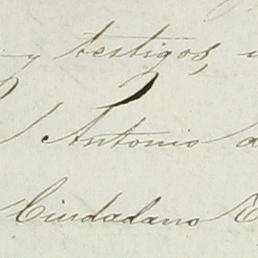 y testigos,
Antonio
Ciudadano